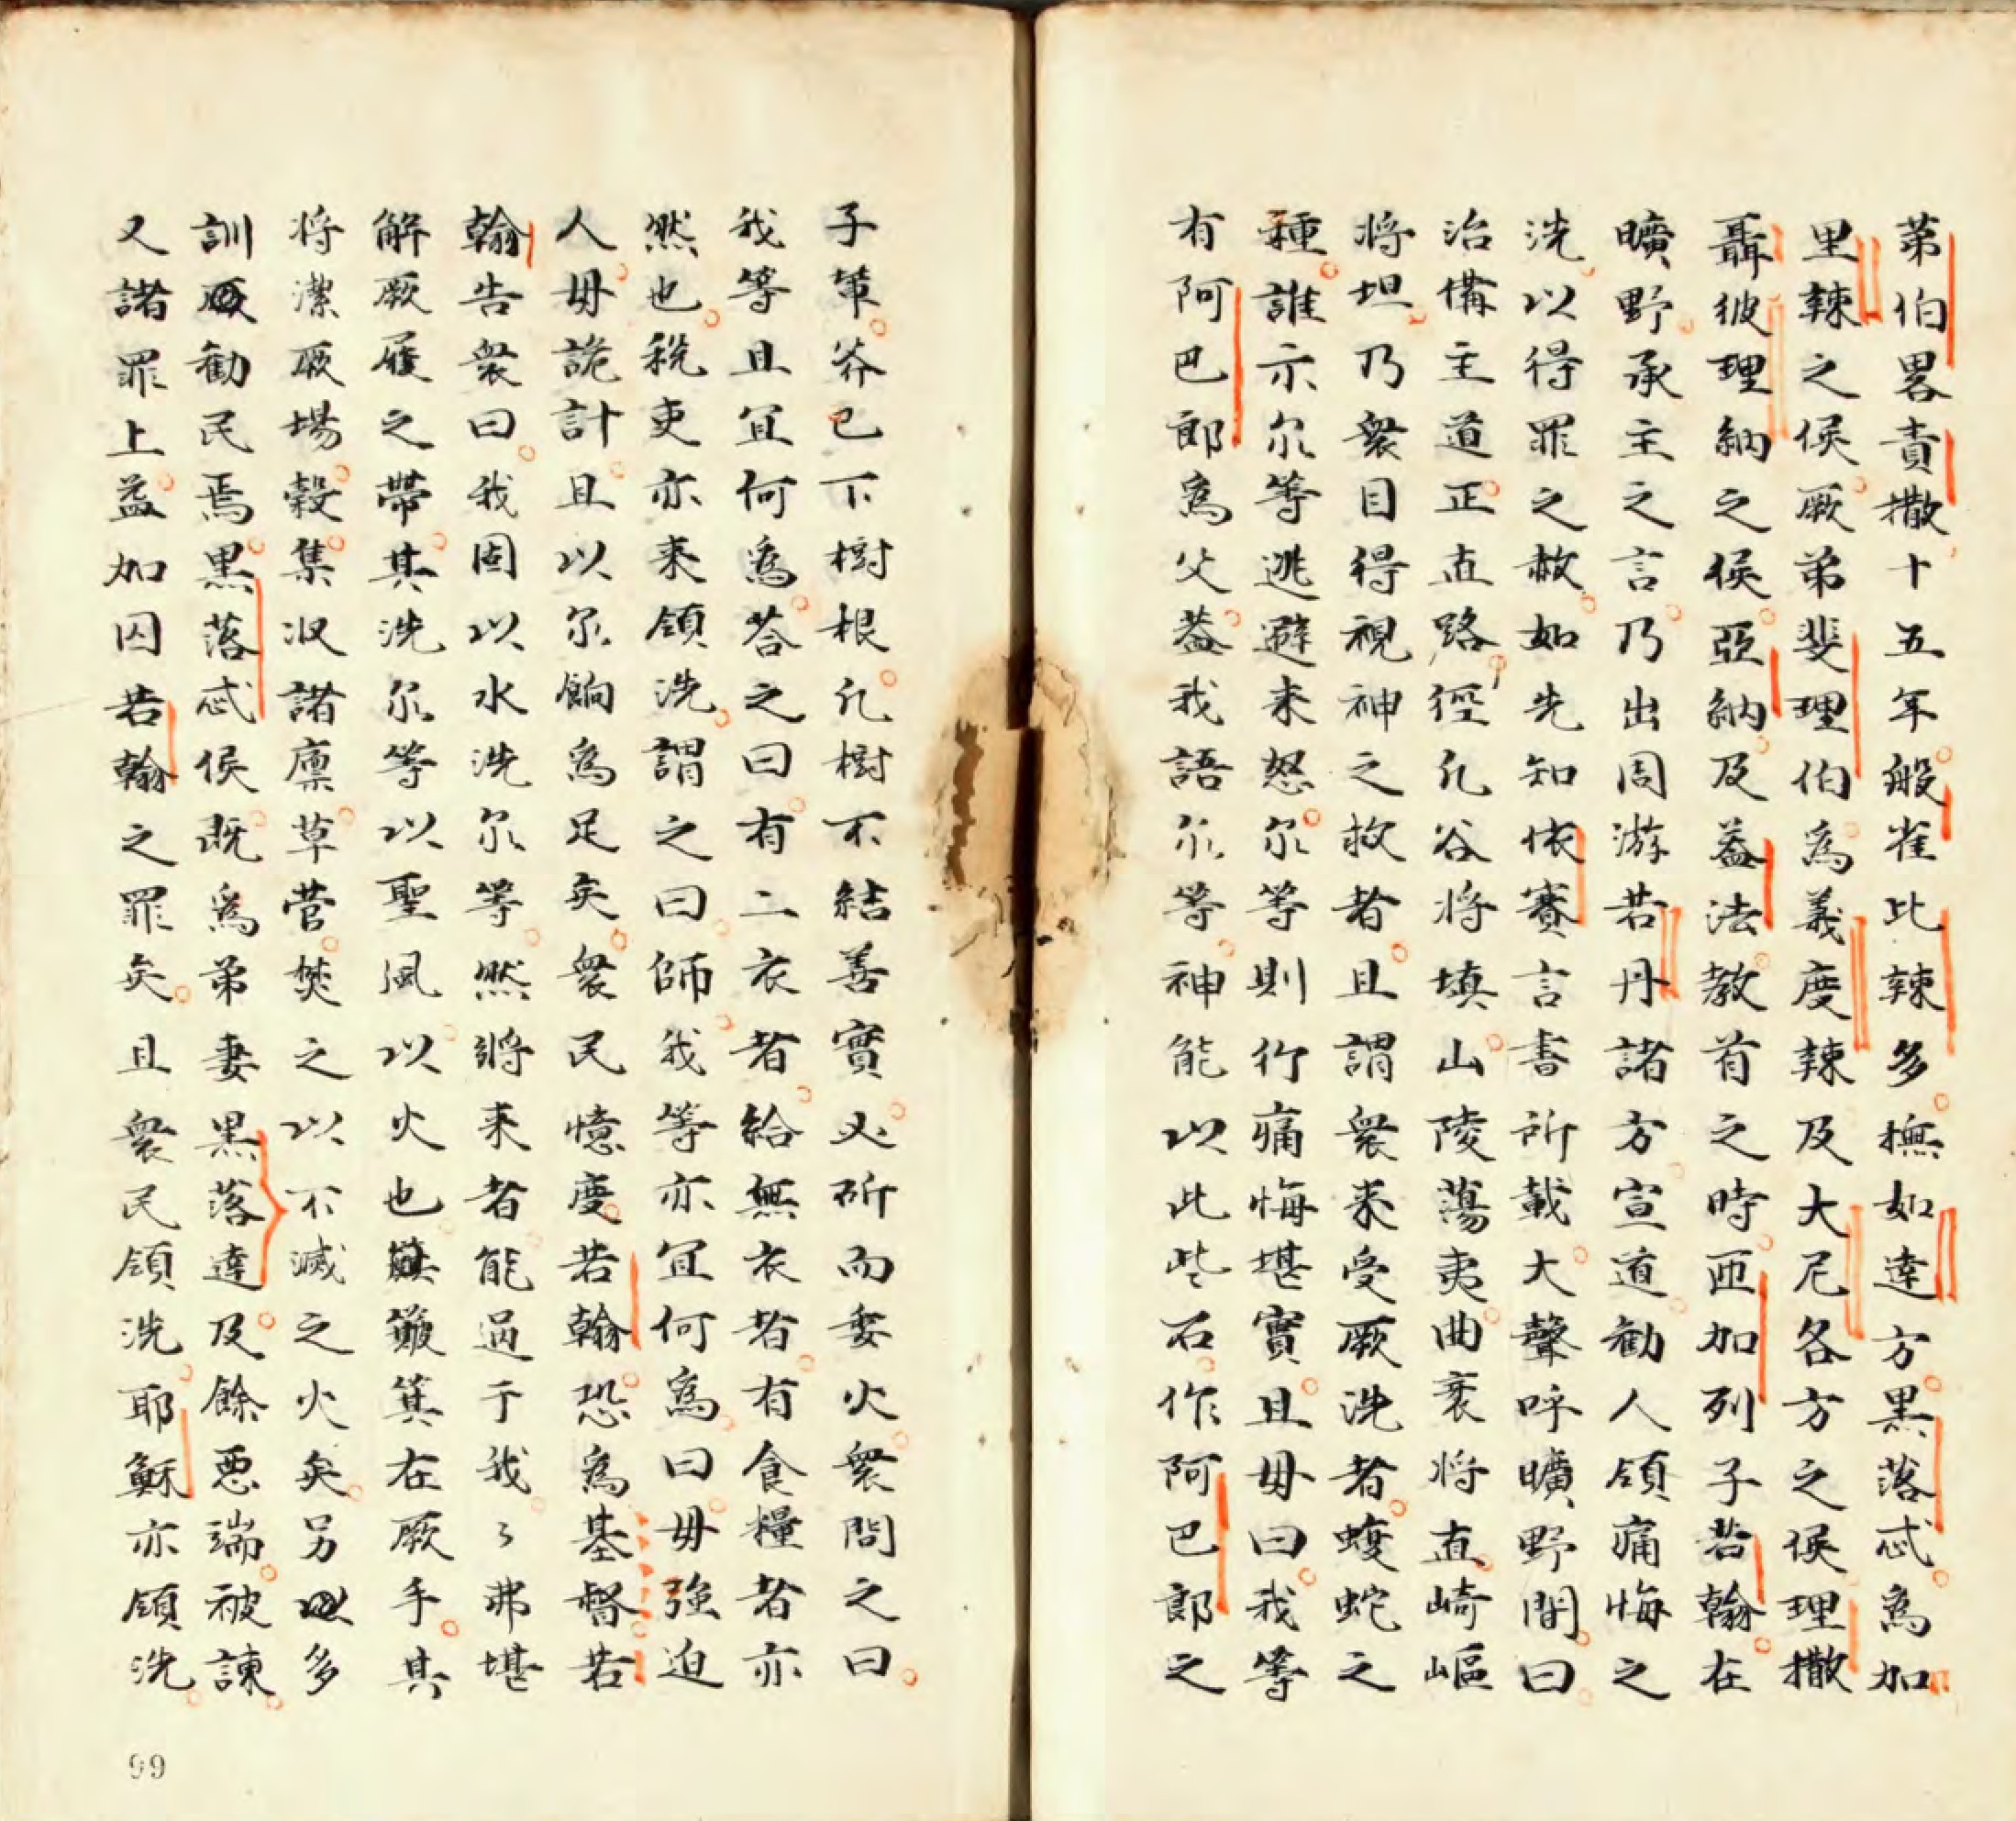 第伯畧責撒十五年般雀比辣多撫如達方黑落忒為加
里辣之侯厥弟斐理伯為義度辣及大尼各方之侯理撒
聶彼理納之侯亞納及葢法教首之時匝加列子若翰在
曠野承主之言乃出周游若丹諸方宣道勸人領痛悔之
洗以得罪之赦如先知依賽言書所載大聲呼曠野間曰
治備主道正直路徑凡谷將填山陵蕩夷曲袤將直崎嶇
將坦乃衆目得視神之救者且謂衆來受厥洗者蝮蛇之
種誰示尔等逃避来怒尔等則行痛悔堪實且毋曰我等
有阿巴郎為父葢我語尔等神能以此些石作阿巴郎之
子輩斧已下樹根凡樹不結善實必斫而委火衆問之曰
我等且宜何為荅之曰有二衣者給無衣者有食糧者亦
然也税吏亦來領洗謂之曰師我等亦宜何為曰毋強迫
人毋詭計且以尔餉為足矣衆民憶度若翰恐為基督若
翰告衆曰我固以水洗尔等然將来者能過于我〻弗堪
解厥履之帶其洗尔等以聖風以火也簸箕在厥手其
將潔厥場穀集収諸廪草菅焚之以不滅之火矣另以多
訓厥勸民焉黑落忒侯既為弟妻黑落達及餘惡端被諫
又諸罪上益加囚若翰之罪矣且衆民領洗耶穌亦領洗
99